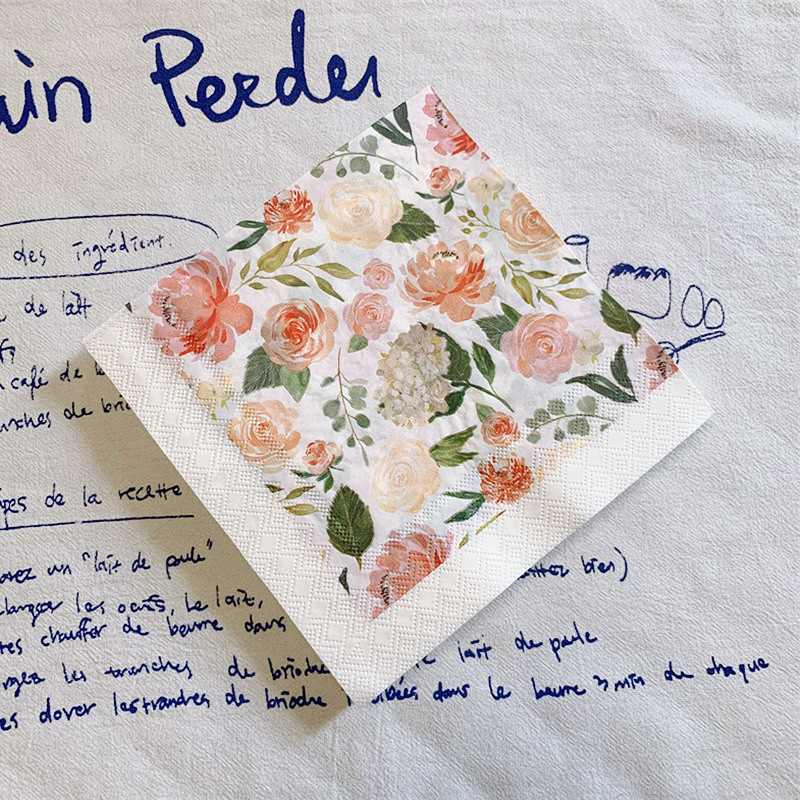 ain Perdu
des ingrédient.
de lait
café de
nches de brio
pes de la recette
arez un "lait de poule"
langer les oeufs, le lait, ttez bien)
tes chauffer de beurre dans
rgez les tranches de brioche le lait de poule
es dorer les trandres de brioche ibées dans le beurre 3 min de chaque